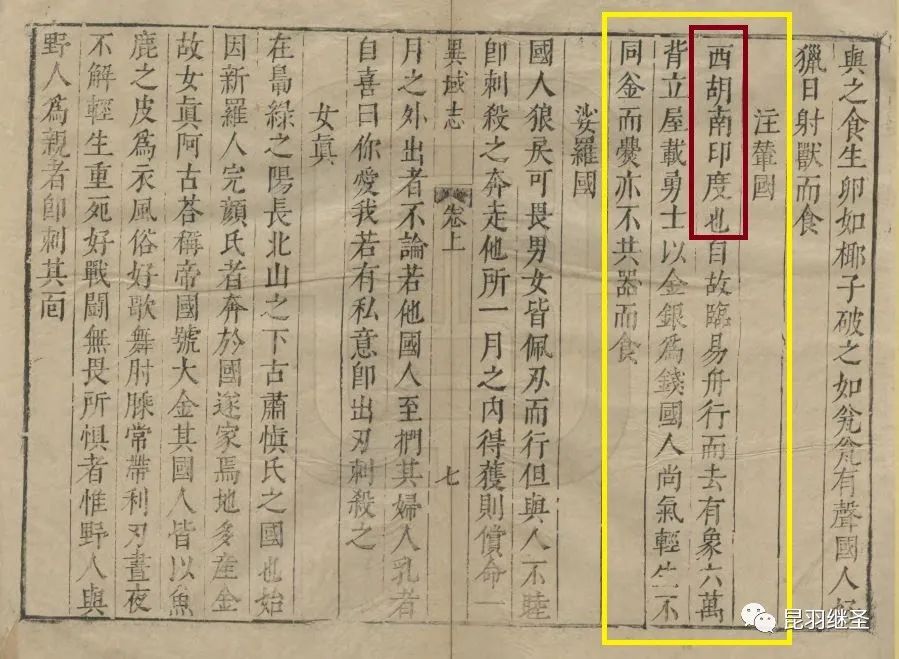 與之食生卵如椰子破之如瓮瓮有聲國人好
獵日射獸而食
注輦國
西胡南印度也自故臨易舟行而去有象六萬
背立屋載勇士以金銀為錢國人尚氣輕生不
同釜而爨亦不共器而食
娑羅國
國人狼戾可畏男女皆佩刃而行但與人不睦
卽刺殺之奔走他所一月之內得獲則償命一
異域志
卷上
七
月之外出者不論若他國人至捫其婦人乳者
自喜曰你愛我若有私意卽出刃刺殺之
女眞
在鼂綠之陽長北山之下古肅愼氏之國也始
因新羅人完顏氏者奔於國遂家焉地多產金
故女眞阿古荅稱帝國號大金其國人皆以魚
鹿之皮爲衣風俗好歌舞肘膝常帶利刃晝夜
不解輕生重死好戰鬪無畏所懼者惟野人與
野人爲親者卽刺其面
昆羽继圣